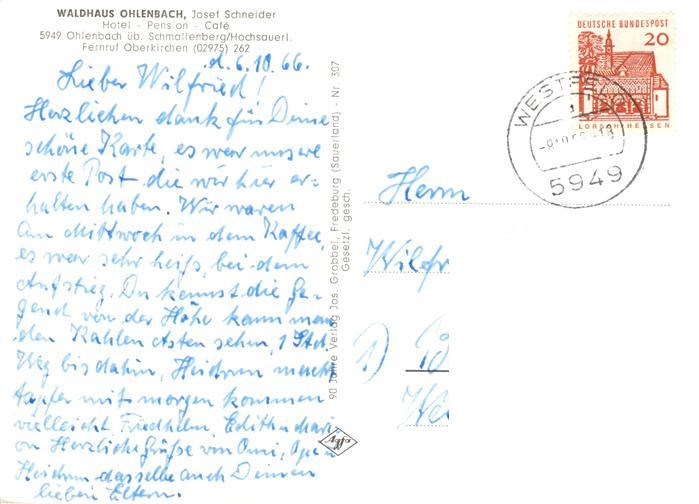 WALDHAUS OHLENBACH, Josef Schneider
Hotel - Pension - Café
5949 Ohlenbach üb. Schmallenberg/Hochsauerl.
Fernruf Oberkirchen (02975) 262
d. 6.10.66.
Lieber Wilfried!
Herzlichen dank für Deine
schöne Karte, es war unsere
erste Post die wir hier er-
halten haben. Wir waren
am Mittwoch in dem Kaffee,
es war sehr heiß, bei dem
Aufstieg. Du kennst die Ge-
gend, von der Höhe kann man
den Kahlen Asten sehen, 1 Std.
Weg bis dahin, Heidrun macht
tapfer mit morgen kommen
vielleicht Friedhelm, Edith u Mari
on Herzliche Grüße von Omi, Opa u
Heidrun dasselbe auch Deinen
lieben Eltern.
90 Jahre Verlag Jos. Grobbel, Fredeburg (Sauerland) - Nr. 307
Gesetzl. gesch.
DEUTSCHE BUNDESPOST
20
LORSCH/HESSEN
5949
Herrn
Wilfr
1)